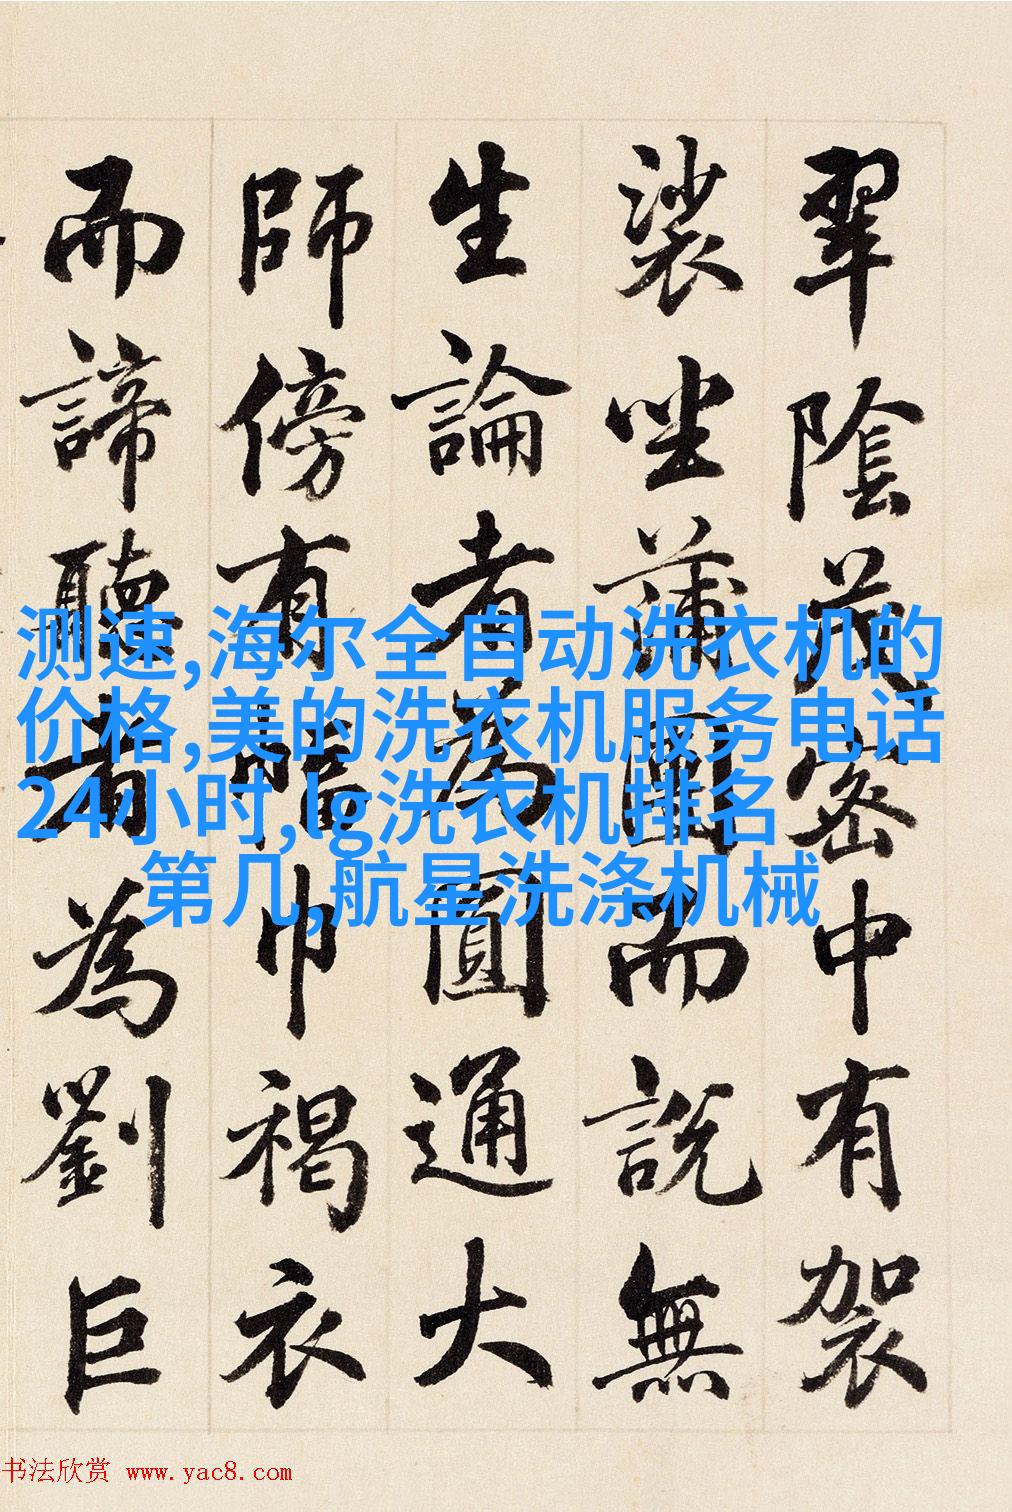 翠陰茂密中有袈
裟坐蒲團而說無
生論者為圓通大
師傍有幅巾褐衣
而諦聽者為劉巨
测速,海尔全自动洗衣机的
价格,美的洗衣机服务电话
24小时,lg洗衣机排名
第几,航星洗涤机械
书法欣赏 www.yac8.com